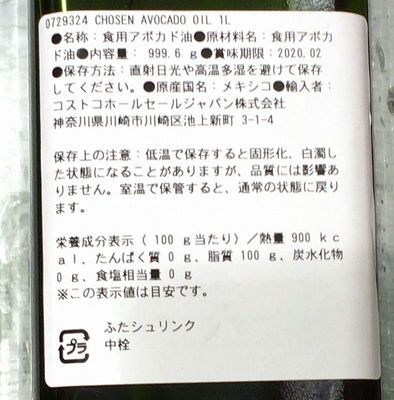 0729324 CHOSEN AVOCADO OIL 1L
●名称：食用アボカド油●原材料名：食用アボカ
ド油●内容量： 999.6 g●賞味期限：2020.02
●保存方法：直射日光や高温多湿を避けて保存
してください。●原産国名：メキシコ●輸入者：
コストコホールセールジャパン株式会社
神奈川県川崎市川崎区池上新町 3-1-4
保存上の注意：低温で保存すると固形化、白濁し
た状態になることがありますが、品質には影響あ
りません。室温で保管すると、通常の状態に戻り
ます。
栄養成分表示（ 100 g当たり）／熱量 900 kc
al、たんぱく質 0 g、脂質 100 g、炭水化物
0 g、食塩相当量 0 g
※この表示値は目安です。
プラ
ふたシュリンク
中栓